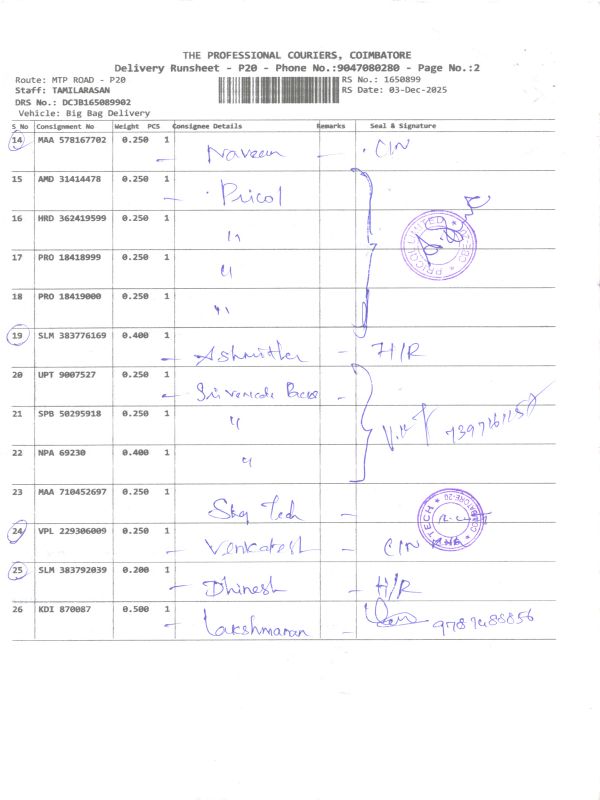 THE PROFESSIONAL COURIERS, COIMBATORE
Delivery Runsheet - P20 - Phone No.:9047080280 - Page No.:2
Route: MTP ROAD - P20 RS No.: 1650899
Staff: TAMILARASAN RS Date: 03-Dec-2025
DRS No.: DCJB165089902
Vehicle: Big Bag Delivery
S_No Consignment No Weight PCS Consignee Details Remarks Seal & Signature
14 MAA 578167702 0.250 1
Naveen - CIN
15 AMD 31414478 0.250 1
Pricol
16 HRD 362419599 0.250 1
"
PRICOL LIMITED
17 PRO 18418999 0.250 1
"
18 PRO 18419000 0.250 1
"
19 SLM 383776169 0.400 1
Ashmitha - H/R
20 UPT 9007527 0.250 1
21 SPB 50295918 0.250 1
"
22 NPA 69230 0.400 1
"
23 MAA 710452697 0.250 1
Sky Tech -
24 VPL 229306009 0.250 1
Venkatesh - CIN
25 SLM 383792039 0.200 1
Dhinesh - H/R
26 KDI 870087 0.500 1
Lakshmanan - 9787488856